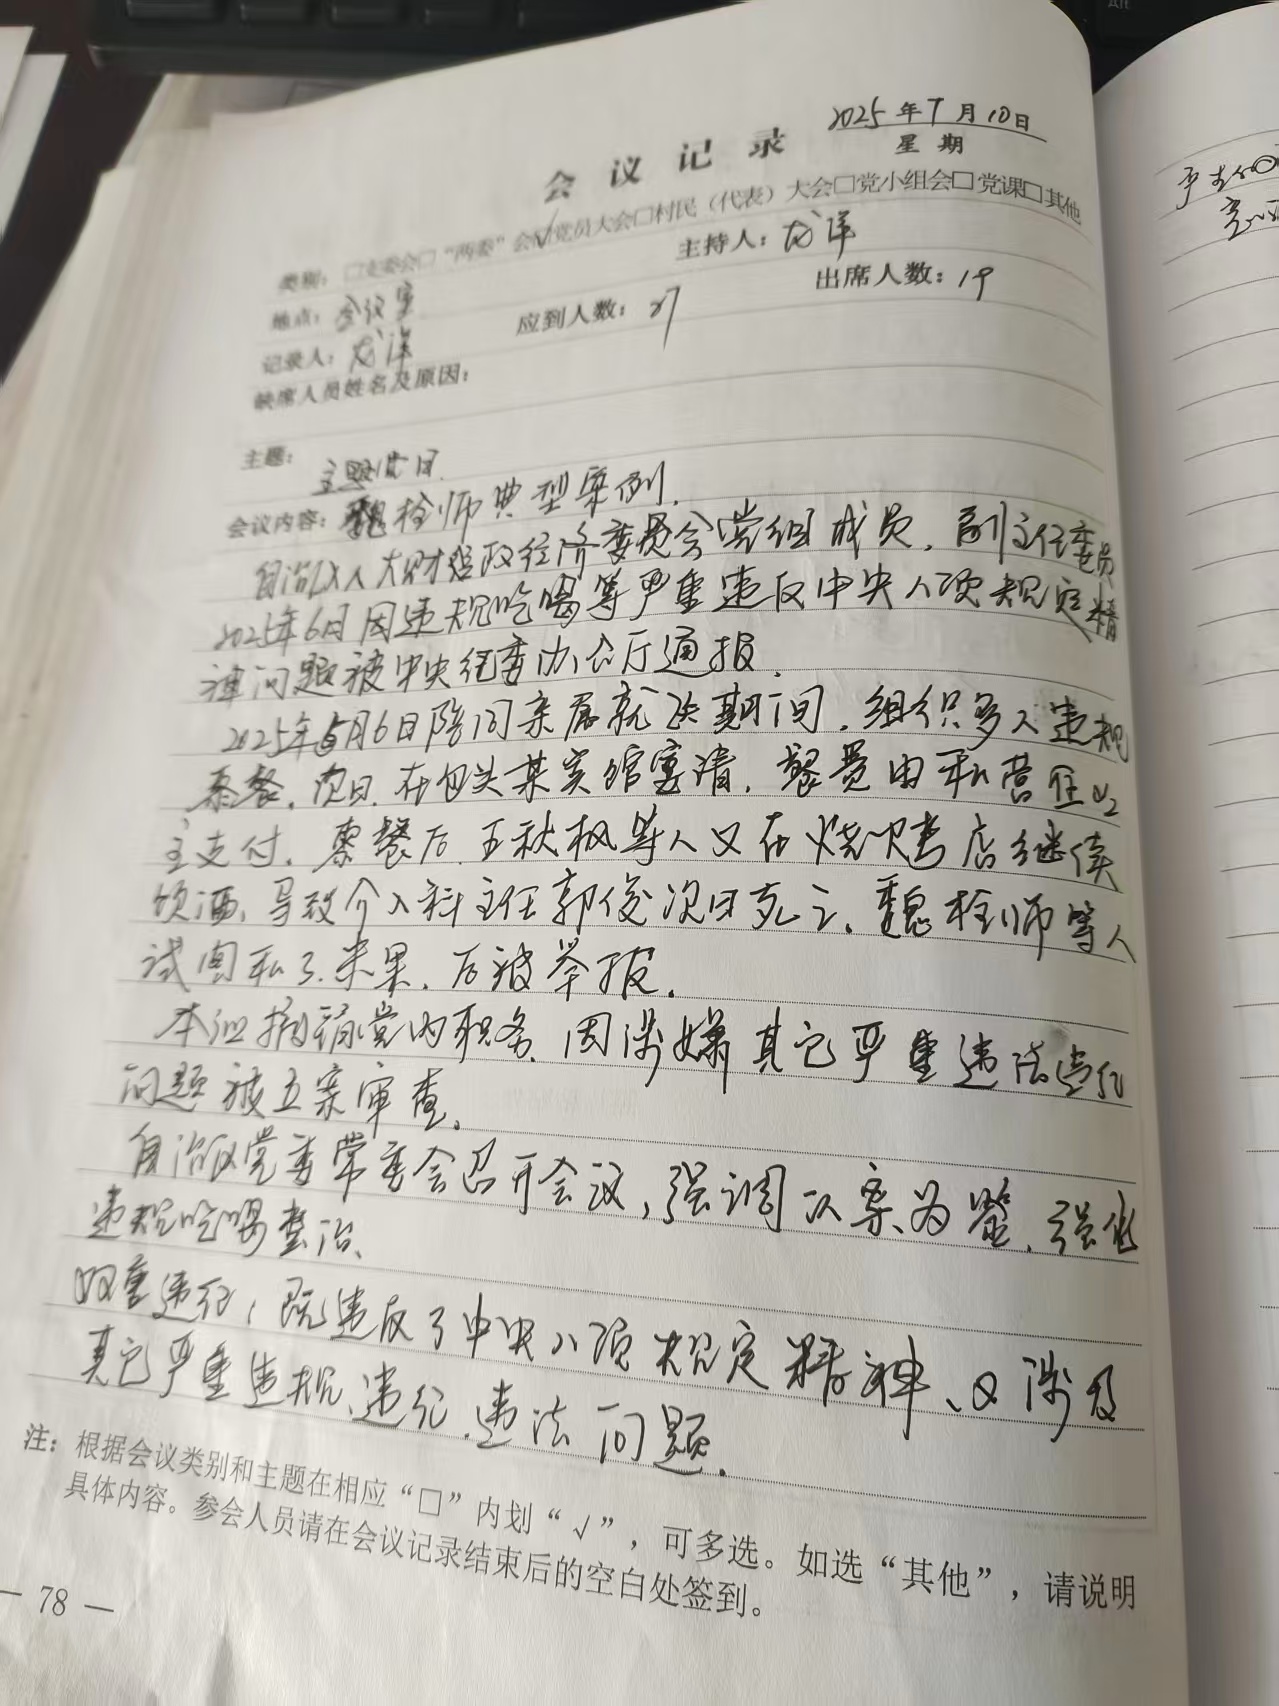 2025年7月10日
会议记录 星期
类别：□支委会□“两委”会☑党员大会□村民（代表）大会□党小组会□党课□其他
地点：会议室 主持人：龙洋
记录人：龙洋 应到人数：27 出席人数：19
缺席人员姓名及原因：
主题：主题党日.
会议内容：魏栓师典型案例.
自治区人大财经政经济委员会党组成员，副主任委员
2025年6月因违规吃喝等严重违反中央八项规定精
神问题被中央纪委办公厅通报.
2025年5月6日陪同亲属就医期间，组织多人违规
聚餐，次日，在包头某宾馆宴请，餐费由私营企业
主支付，聚餐后，王秋枫等人又在烧烤店继续
饮酒，导致介入科主任郭俊次日死亡，魏栓师等人
试图私了未果，后被举报.
本组摘编党内职务，因涉嫌其它严重违法违纪
问题被立案审查.
自治区党委常委会召开会议，强调以案为鉴，强化
违规吃喝整治.
双重违纪，既违反了中央八项规定精神、又涉及
其它严重违规、违纪.违法问题.
注：根据会议类别和主题在相应“□”内划“√”，可多选。如选“其他”，请说明
具体内容。参会人员请在会议记录结束后的空白处签到。
— 78 —